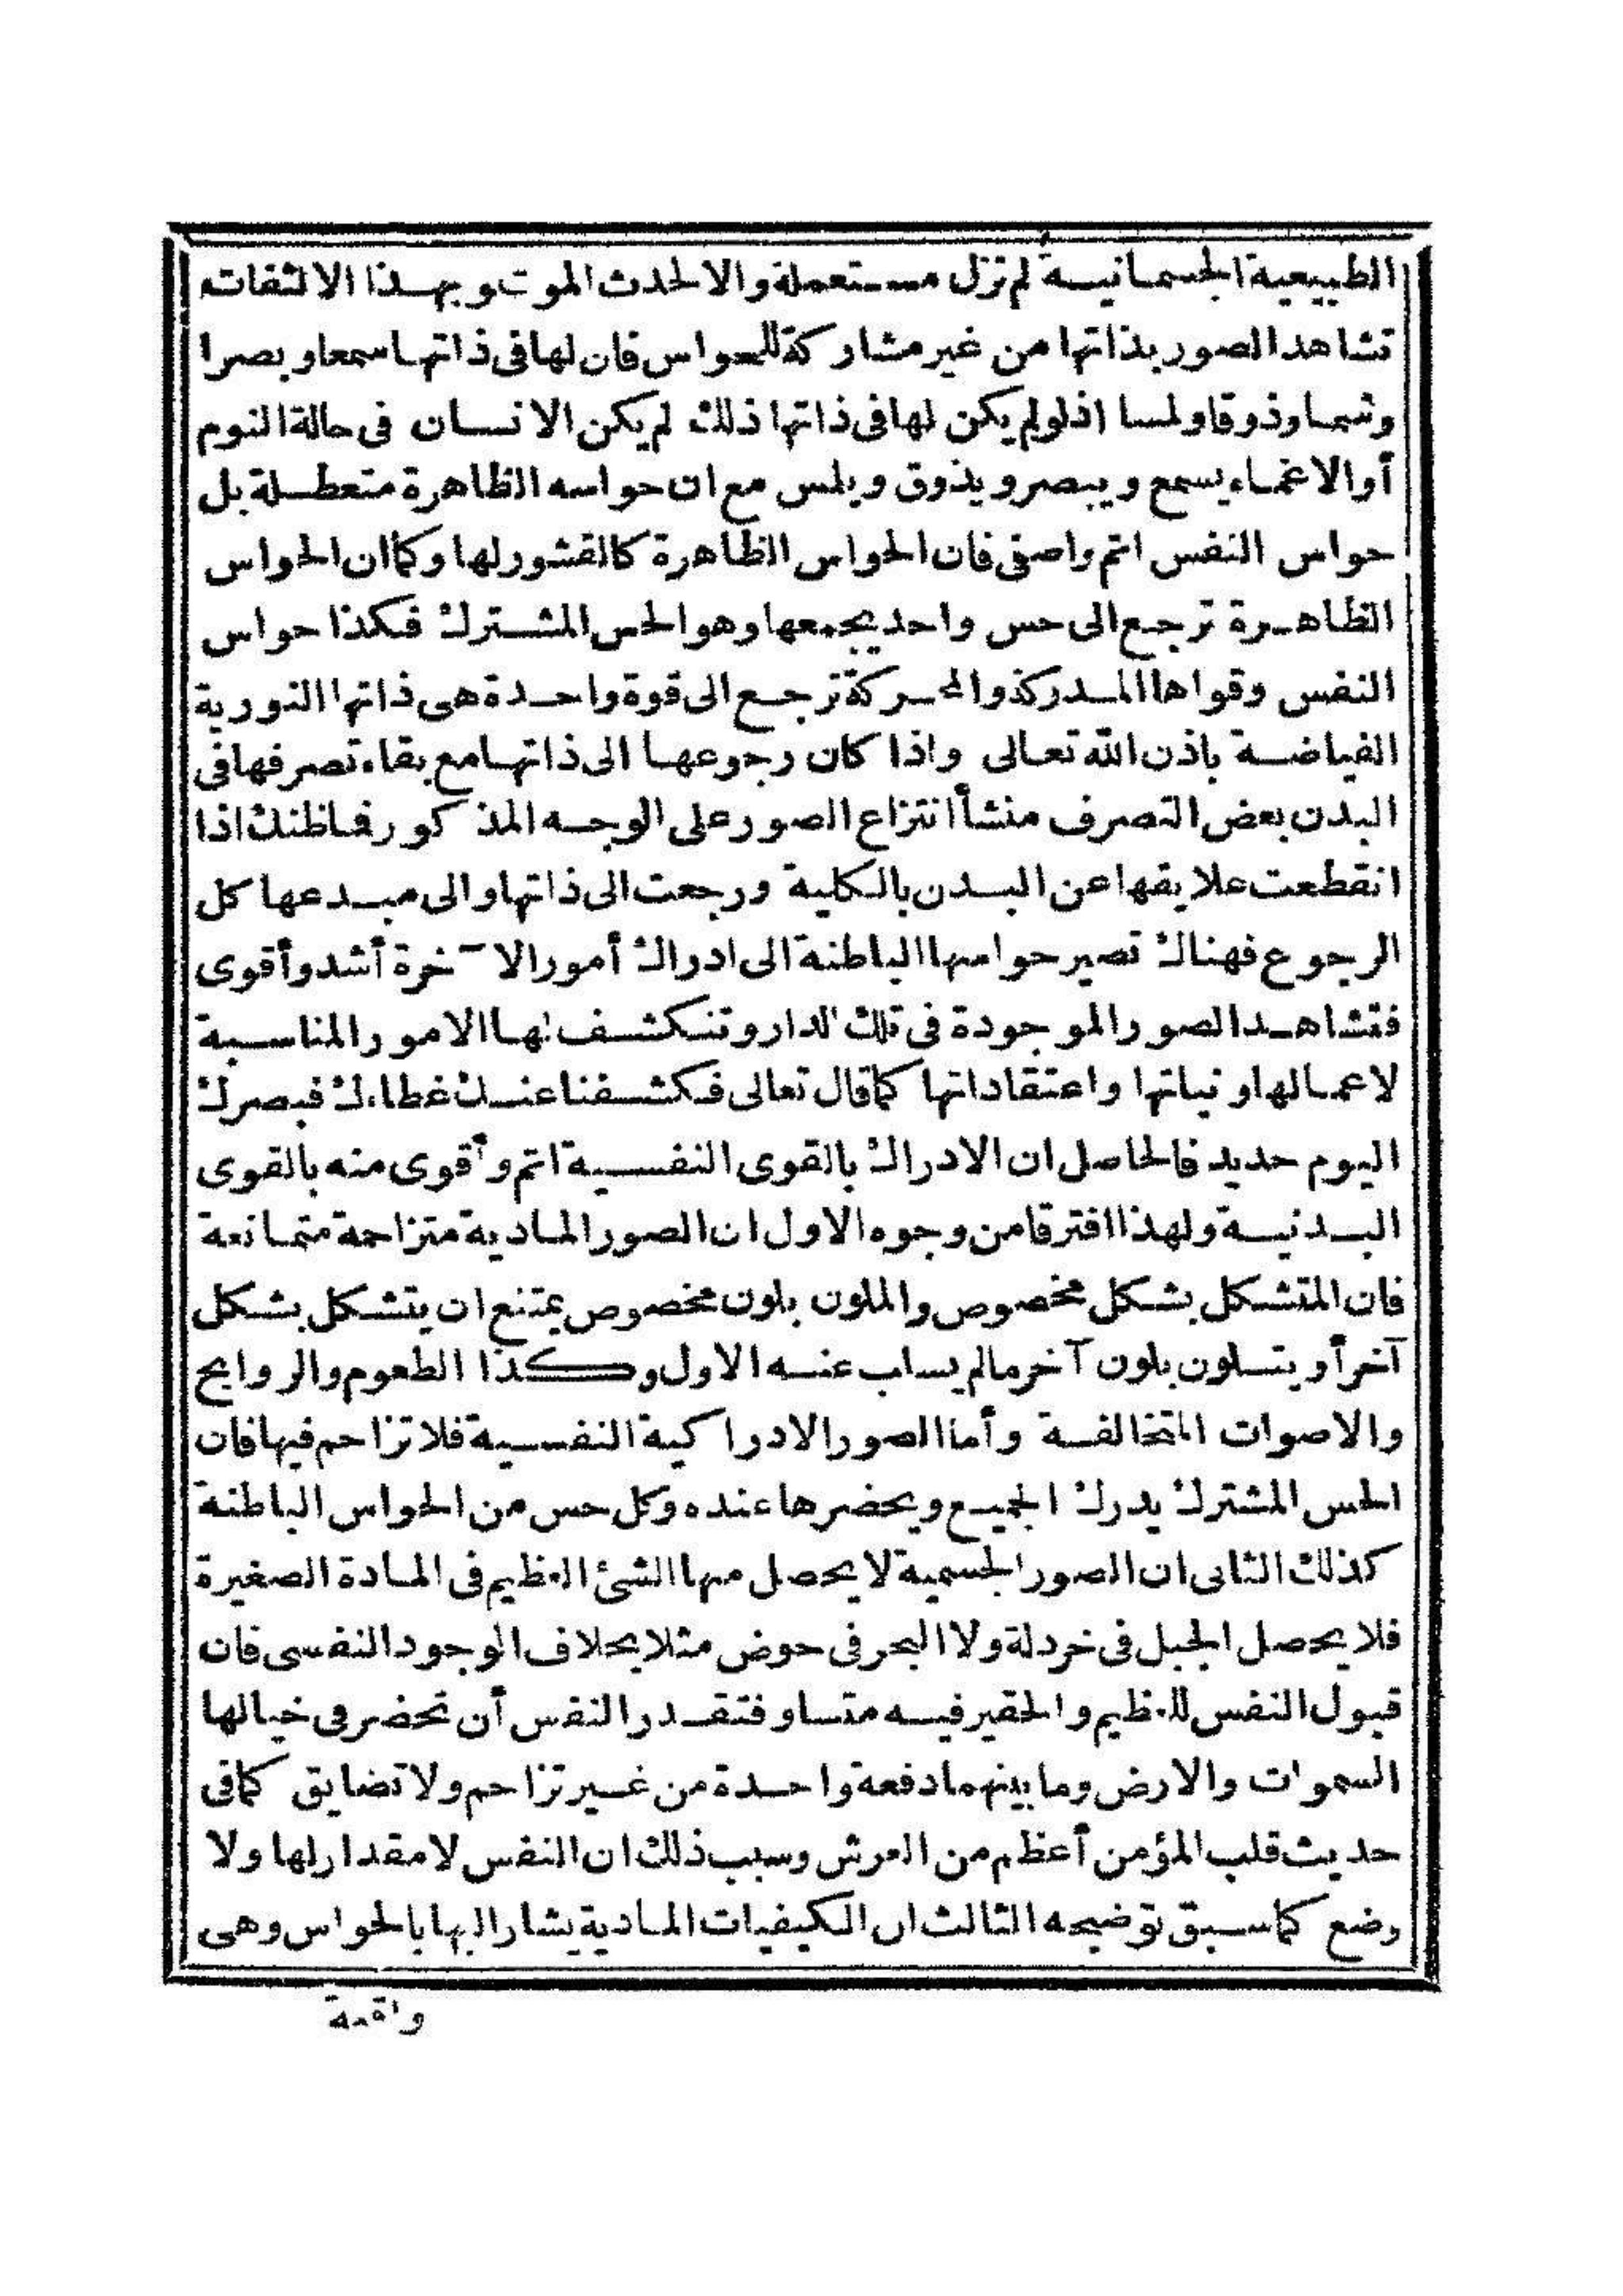 الطبيعية الجسمانية لم تزل مستعملة والا لحدث الموت وبهذا الالتفات
تشاهد الصور بذاتها من غير مشاركة للحواس فان لها فى ذاتها سمعا وبصرا
وشما وذوقا ولمسا اذلو لم يكن لها فى ذاتها ذلك لم يكن الانسان فى حالة النوم
أو الاغماء يسمع ويبصر ويذوق ويلمس مع ان حواسه الظاهرة متعطلة بل
حواس النفس اتم واصفى فان الحواس الظاهرة كالقشور لها وكما ان الحواس
الظاهرة ترجع الى حس واحد يجمعها وهو الحس المشترك فكذا حواس
النفس وقواها المدركة والمحركة ترجع الى قوة واحدة هى ذاتها النورية
الفياضة باذن الله تعالى واذا كان رجوعها الى ذاتها مع بقاء تصرفها فى
البدن بعض التصرف منشأ انتزاع الصور على الوجه المذكور فما ظنك اذا
انقطعت علايقها عن البدن بالكلية ورجعت الى ذاتها والى مبدعها كل
الرجوع فهناك تصير حواسها الباطنة الى ادراك أمور الآخرة أشد وأقوى
فتشاهد الصور الموجودة فى تلك الدار وتنكشف لها الامور المناسبة
لاعمالها ونياتها واعتقاداتها كما قال تعالى فكشفنا عنك غطاءك فبصرك
اليوم حديد فالحاصل ان الادراك بالقوى النفسية اتم وأقوى منه بالقوى
البدنية ولهذا افترقا من وجوه الاول ان الصور المادية متزاحمة متمانعة
فان المتشكل بشكل مخصوص والملون بلون مخصوص يمتنع ان يتشكل بشكل
آخر أو يتلون بلون آخر مالم يسلب عنه الاول وكذا الطعوم والروايح
والاصوات المتخالفة وأما الصور الادراكية النفسية فلا تزاحم فيها فان
الحس المشترك يدرك الجميع ويحضرها عنده وكل حس من الحواس الباطنة
كذلك الثانى ان الصور الجسمية لا يحصل منها الشئ العظيم فى المادة الصغيرة
فلا يحصل الجبل فى خردلة ولا البحر فى حوض مثلا بخلاف الوجود النفسى فان
قبول النفس للعظيم والحقير فيه متساو فتقدر النفس أن تحضر فى خيالها
السموات والارض وما بينهما دفعة واحدة من غير تزاحم ولا تضايق كما فى
حديث قلب المؤمن أعظم من العرش وسبب ذلك ان النفس لا مقدار لها ولا
وضع كما سبق توضيحه الثالث ان الكيفيات المادية يشار اليها بالحواس وهى
واقعة